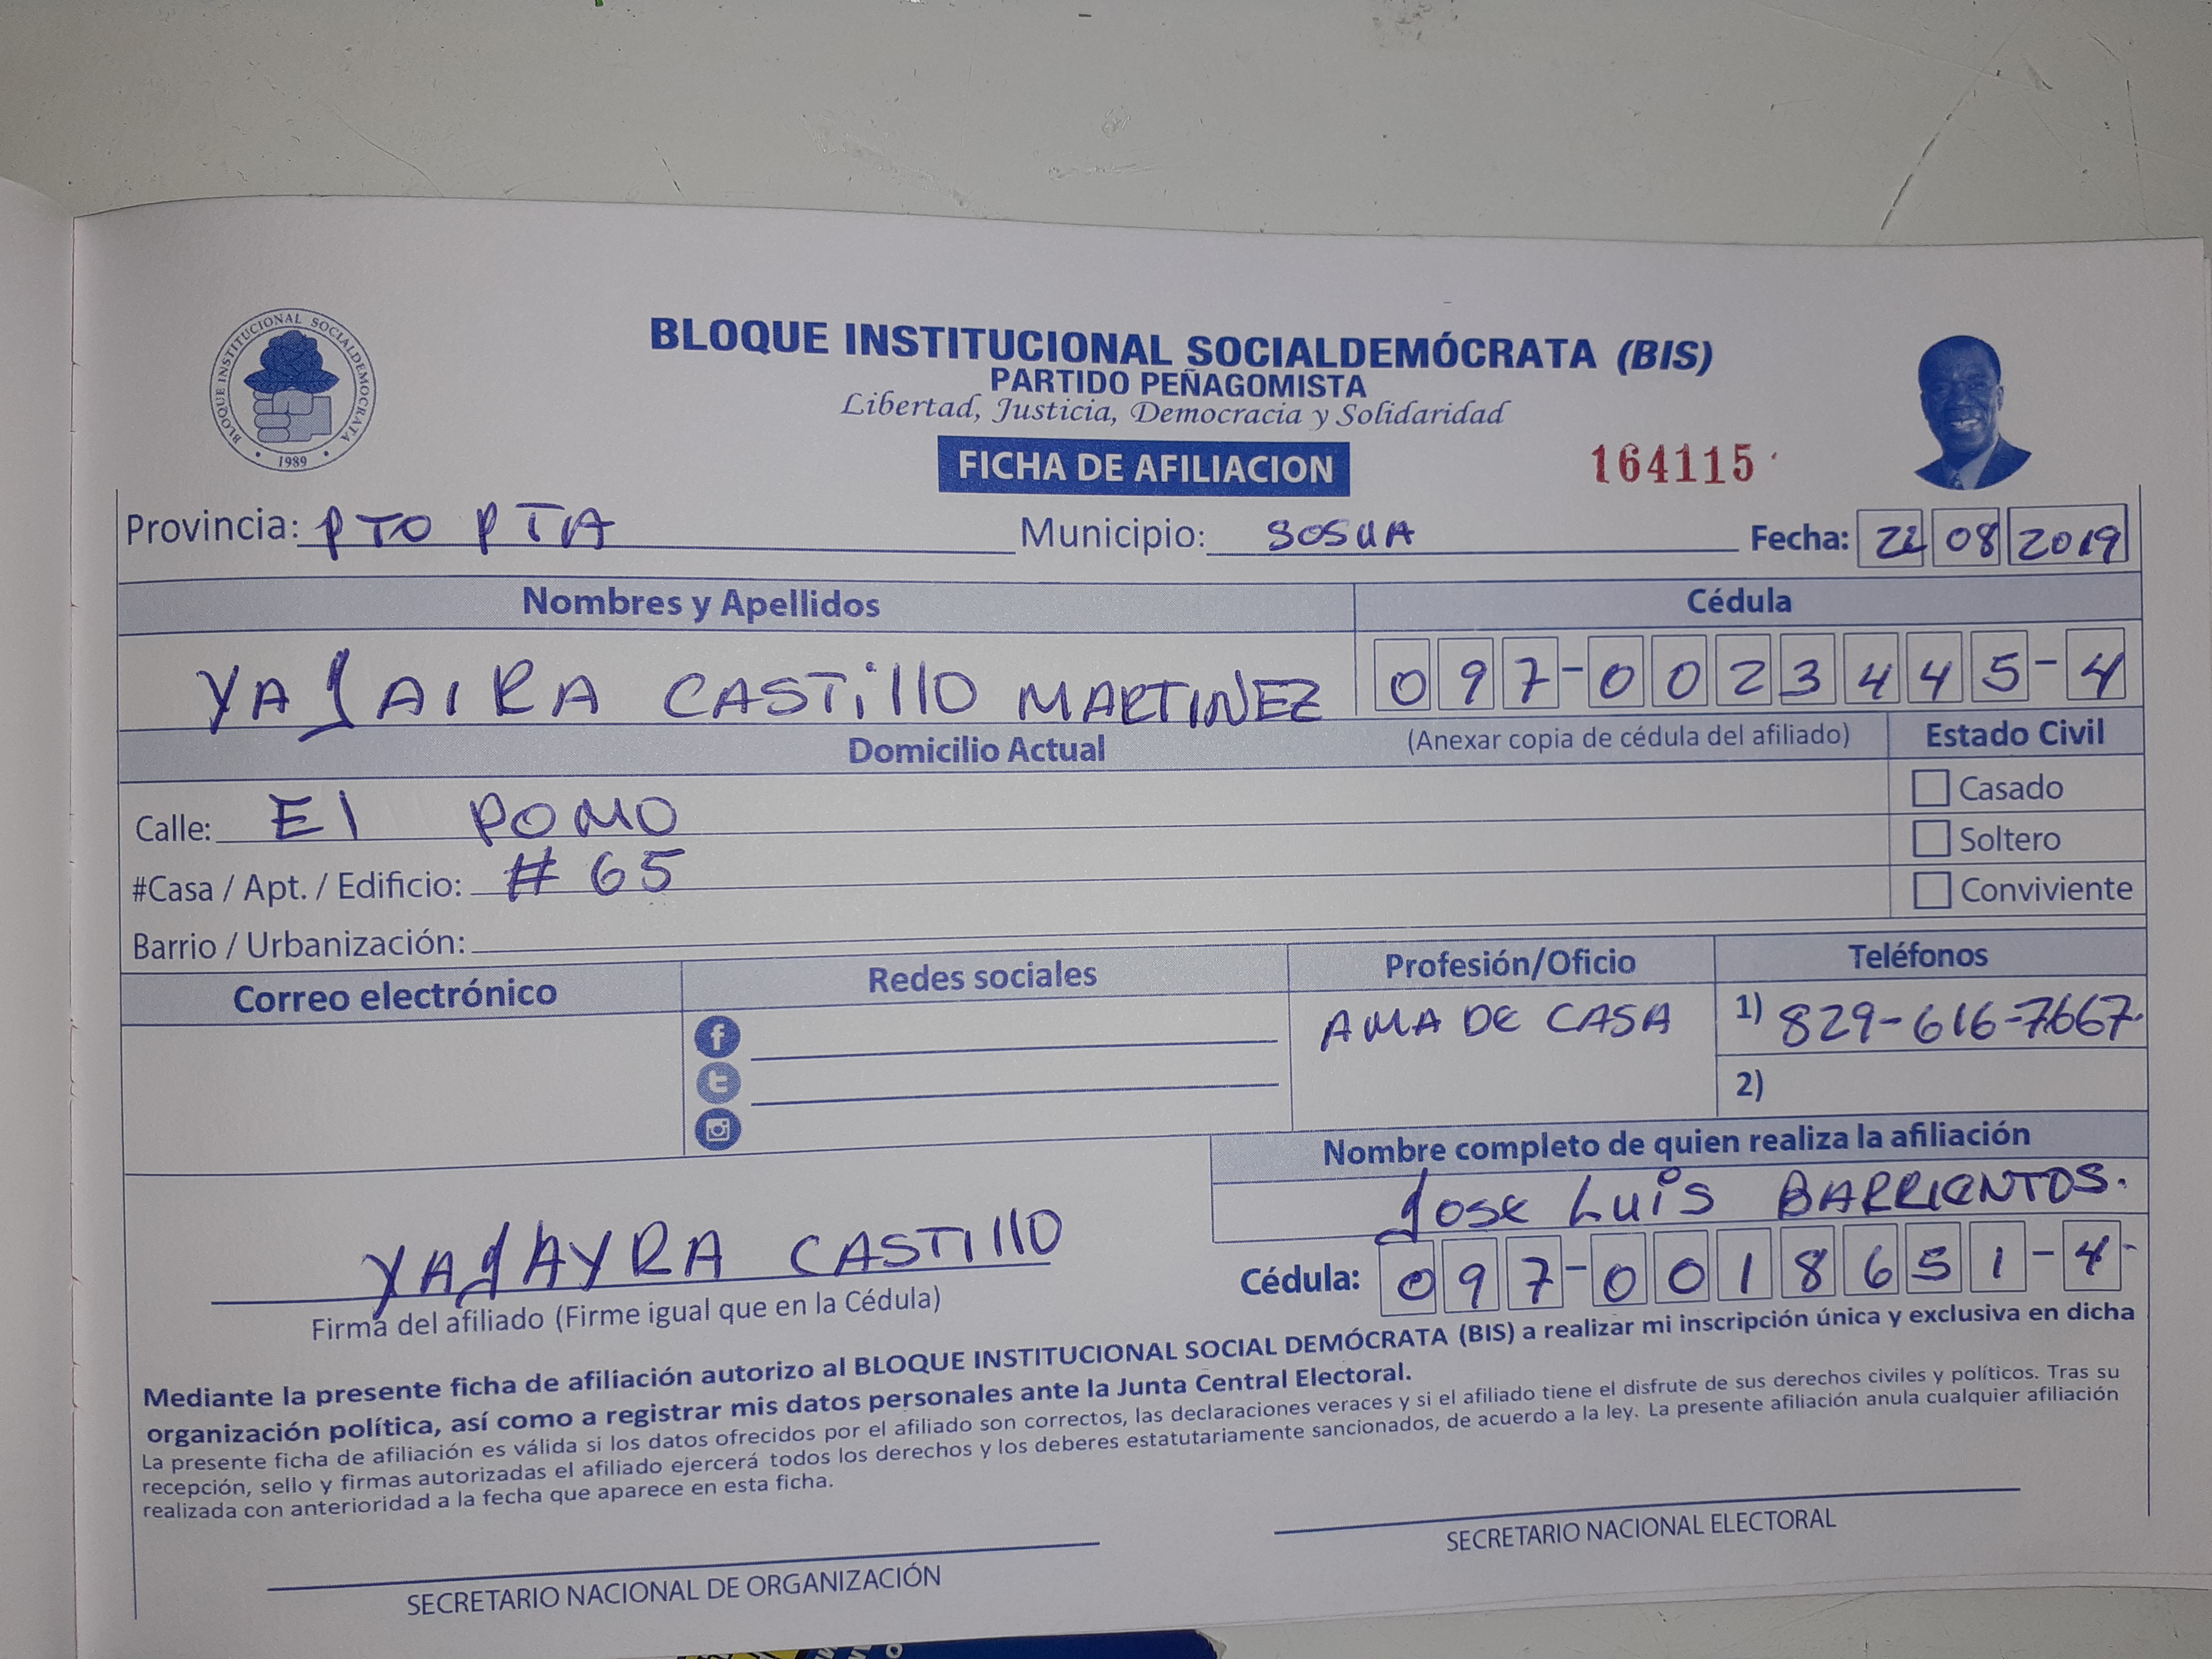 BLOQUE INSTITUCIONAL SOCIALDEMOCRATA
1989
BLOQUE INSTITUCIONAL SOCIALDEMÓCRATA (BIS)
PARTIDO PEÑAGOMISTA
Libertad, Justicia, Democracia y Solidaridad
FICHA DE AFILIACION
164115
Provincia: PTO PTA Municipio: SOSUA Fecha: 22 08 2019
Nombres y Apellidos Cédula
YAJAIRA CASTillO MARTINEZ 097-0023445-4
Domicilio Actual (Anexar copia de cédula del afiliado) Estado Civil
Casado
Calle: El POMO
Soltero
#Casa / Apt. / Edificio: # 65
Conviviente
Barrio / Urbanización:
Correo electrónico Redes sociales Profesión/Oficio Teléfonos
AMA DE CASA 1) 829-616-7667.
2)
Nombre completo de quien realiza la afiliación
Jose Luis BARRIENTOS.
YAJAYRA CASTIllO
Cédula: 097-0018651-4-
Firma del afiliado (Firme igual que en la Cédula)
Mediante la presente ficha de afiliación autorizo al BLOQUE INSTITUCIONAL SOCIAL DEMÓCRATA (BIS) a realizar mi inscripción única y exclusiva en dicha
organización política, así como a registrar mis datos personales ante la Junta Central Electoral.
La presente ficha de afiliación es válida si los datos ofrecidos por el afiliado son correctos, las declaraciones veraces y si el afiliado tiene el disfrute de sus derechos civiles y políticos. Tras su
recepción, sello y firmas autorizadas el afiliado ejercerá todos los derechos y los deberes estatutariamente sancionados, de acuerdo a la ley. La presente afiliación anula cualquier afiliación
realizada con anterioridad a la fecha que aparece en esta ficha.
SECRETARIO NACIONAL DE ORGANIZACIÓN
SECRETARIO NACIONAL ELECTORAL